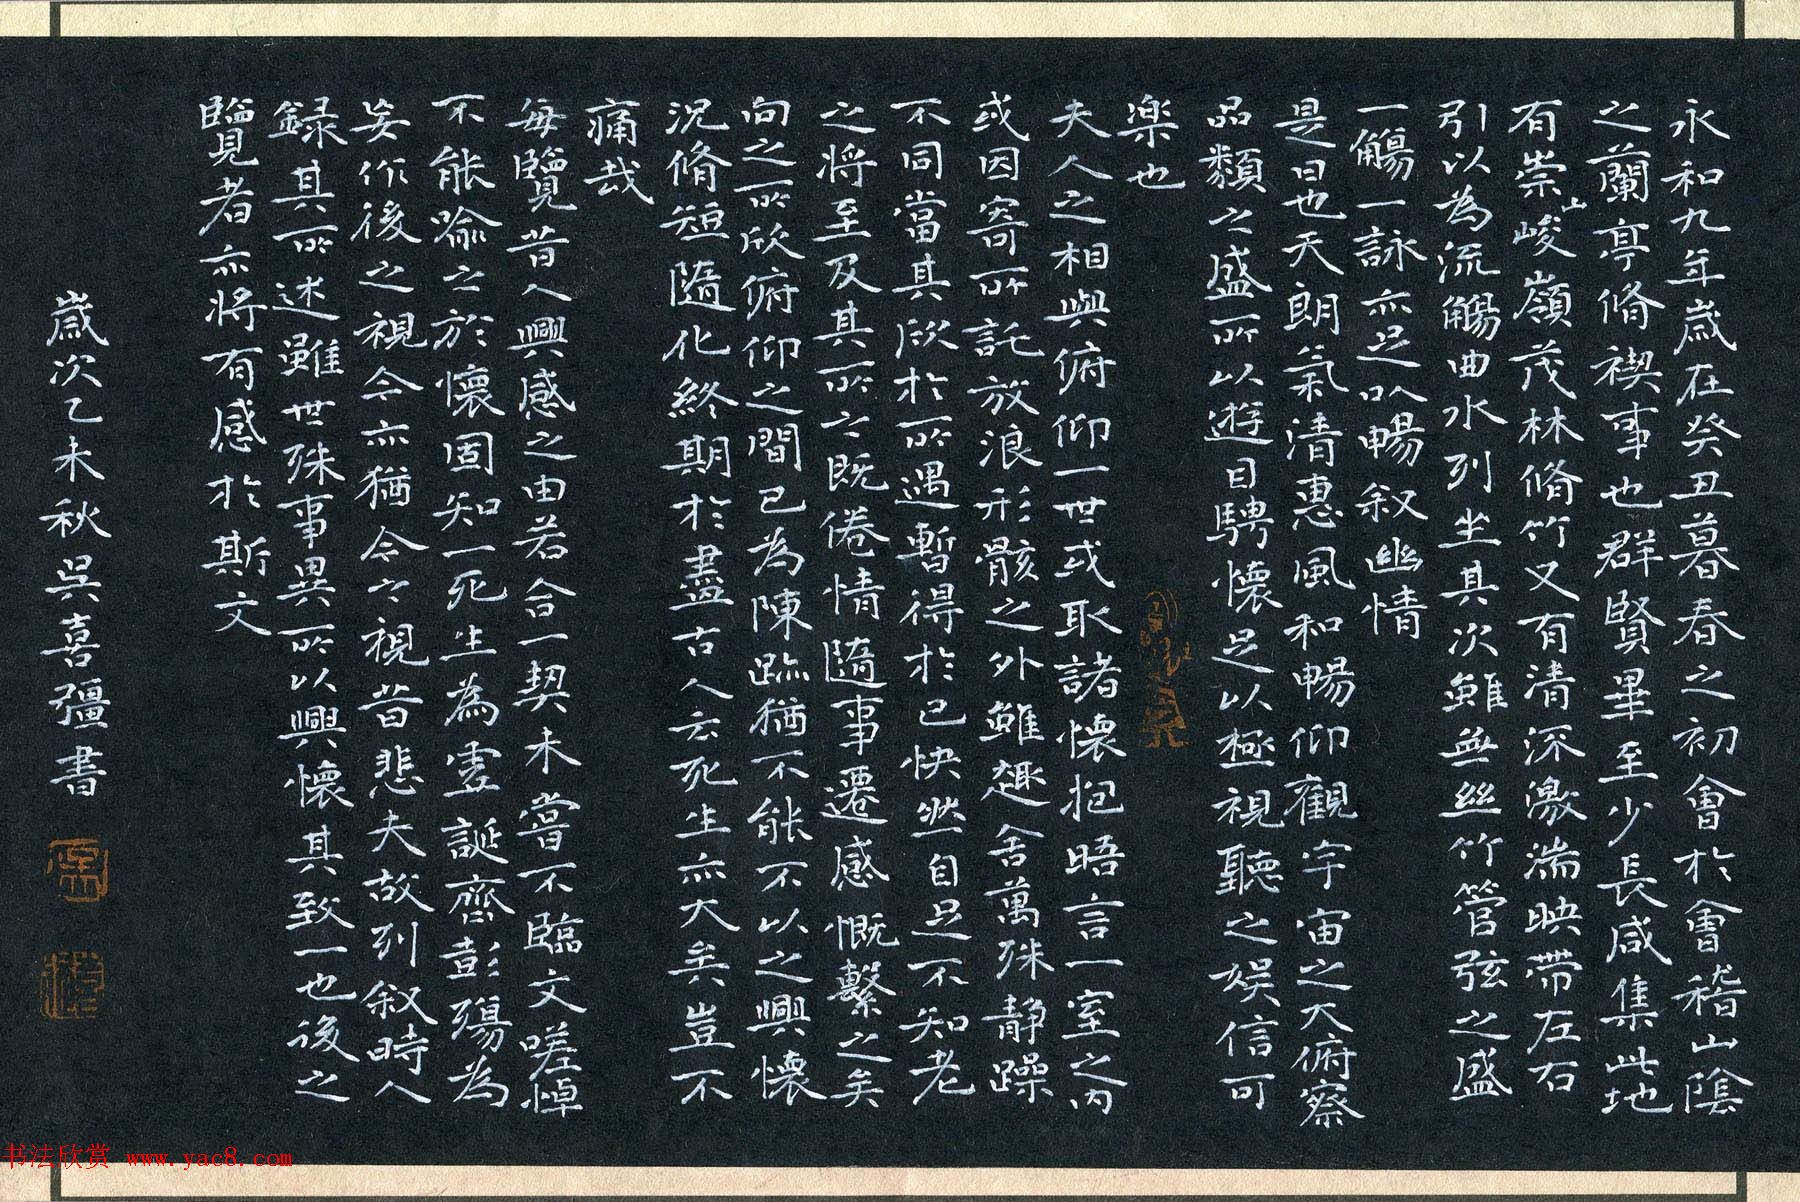 永和九年歲在癸丑暮春之初會於會稽山陰
之蘭亭脩禊事也群賢畢至少長咸集此地
有崇山峻嶺茂林脩竹又有清流激湍映帶左右
引以為流觴曲水列坐其次雖無絲竹管弦之盛
一觴一詠亦足以暢叙幽情
是日也天朗氣清惠風和暢仰觀宇宙之大俯察
品類之盛所以遊目騁懷足以極視聽之娱信可
樂也
夫人之相與俯仰一世或取諸懷抱晤言一室之内
或因寄所託放浪形骸之外雖趣舍萬殊静躁
不同當其欣於所遇暫得於己快然自足不知老
之將至及其所之既倦情隨事遷感慨繫之矣
向之所欣俯仰之間已為陳跡猶不能不以之興懷
況脩短隨化終期於盡古人云死生亦大矣豈不
痛哉
每覽昔人興感之由若合一契未嘗不臨文嗟悼
不能喻之於懷固知一死生為虚誕齊彭殤為
妄作後之視今亦猶今之視昔悲夫故列叙時人
録其所述雖世殊事異所以興懷其致一也後之
覽者亦將有感於斯文
歲次乙未秋吳喜彊書
书法欣赏 www.yac8.com